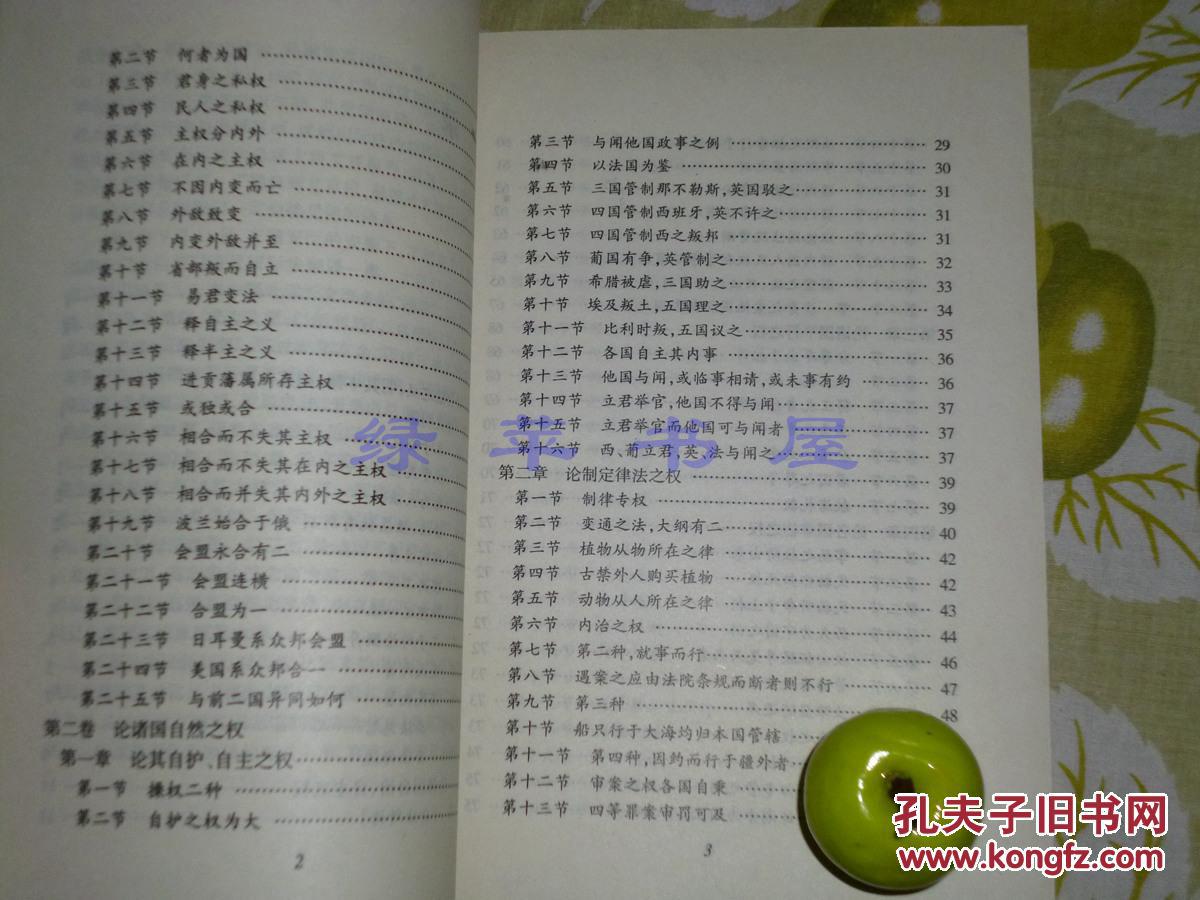 第二节 何者为国
第三节 君身之私权
第四节 民人之私权
第五节 主权分内外
第六节 在内之主权
第七节 不因内变而亡
第八节 外敌致变
第九节 内变外敌并至
第十节 省部叛而自立
第十一节 易君变法
第十二节 释自主之义
第十三节 释半主之义
第十四节 进贡藩属所存主权
第十五节 或独或合
第十六节 相合而不失其主权
第十七节 相合而不失其在内之主权
第十八节 相合而并失其内外之主权
第十九节 波兰始合于俄
第二十节 会盟永合有二
第二十一节 会盟连横
第二十二节 合盟为一
第二十三节 日耳曼系众邦会盟
第二十四节 美国系众邦合一
第二十五节 与前二国异同如何
第二卷 论诸国自然之权
第一章 论其自护、自主之权
第一节 操权二种
第二节 自护之权为大
2
第三节 与闻他国政事之例 29
第四节 以法国为鉴 30
第五节 三国管制那不勒斯,英国驳之 31
第六节 四国管制西班牙,英不许之 31
第七节 四国管制西之叛邦 31
第八节 葡国有争,英管制之 32
第九节 希腊被虐,三国助之 33
第十节 埃及叛土,五国理之 34
第十一节 比利时叛,五国议之 35
第十二节 各国自主其内事 36
第十三节 他国与闻,或临事相请,或未事有约 36
第十四节 立君举官,他国不得与闻 37
第十五节 立君举官而他国可与闻者 37
第十六节 西、葡立君,英、法与闻之 37
第二章 论制定律法之权 39
第一节 制律专权 39
第二节 变通之法,大纲有二 40
第三节 植物从物所在之律 42
第四节 古禁外人购买植物 42
第五节 动物从人所在之律 43
第六节 内治之权 44
第七节 第二种,就事而行 46
第八节 遇案之应由法院条规而断者则不行 47
第九节 第三种 48
第十节 船只行于大海均归本国管辖
第十一节 第四种,因约而行于疆外者
第十二节 审案之权各国自秉
第十三节 四等罪案审罚可及
3
绿苹书屋
孔夫子旧书网
www.kongfz.com